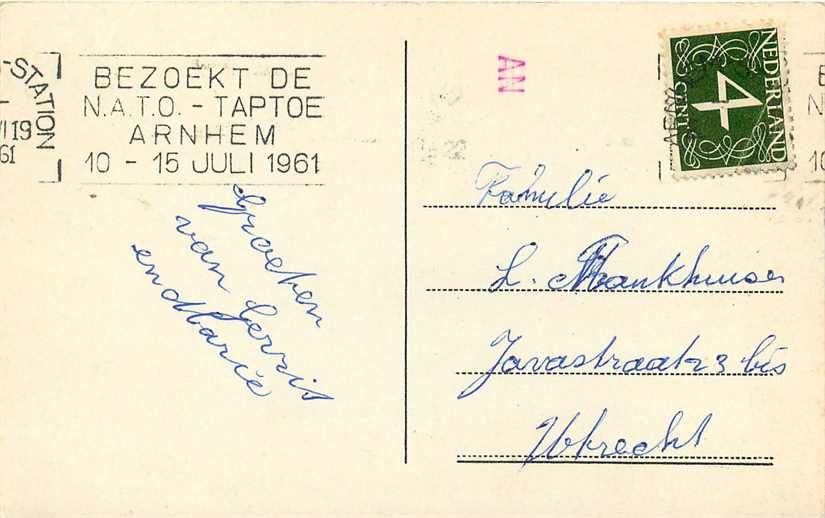 -STATION
VI 19
61
BEZOEKT DE
N.A.T.O. - TAPTOE
ARNHEM
10 - 15 JULI 1961
AN
NEDERLAND
4
CENT
Groeten
van Gerrit
en Marie
Familie
L.
Javastraat 3 bis
Utrecht
10